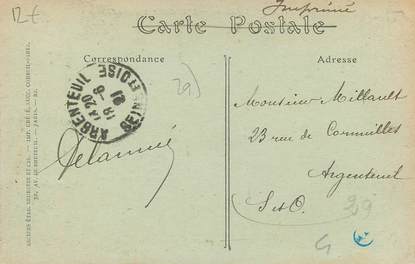 Imprimé
Carte Postale
Correspondance
Adresse
ARGENTEUIL
SEINE ET OISE
14 20
18 - 6
21
29
Monsieur Millault
23 rue de Cormeilles
Argenteuil
S et O.
29
Delannié